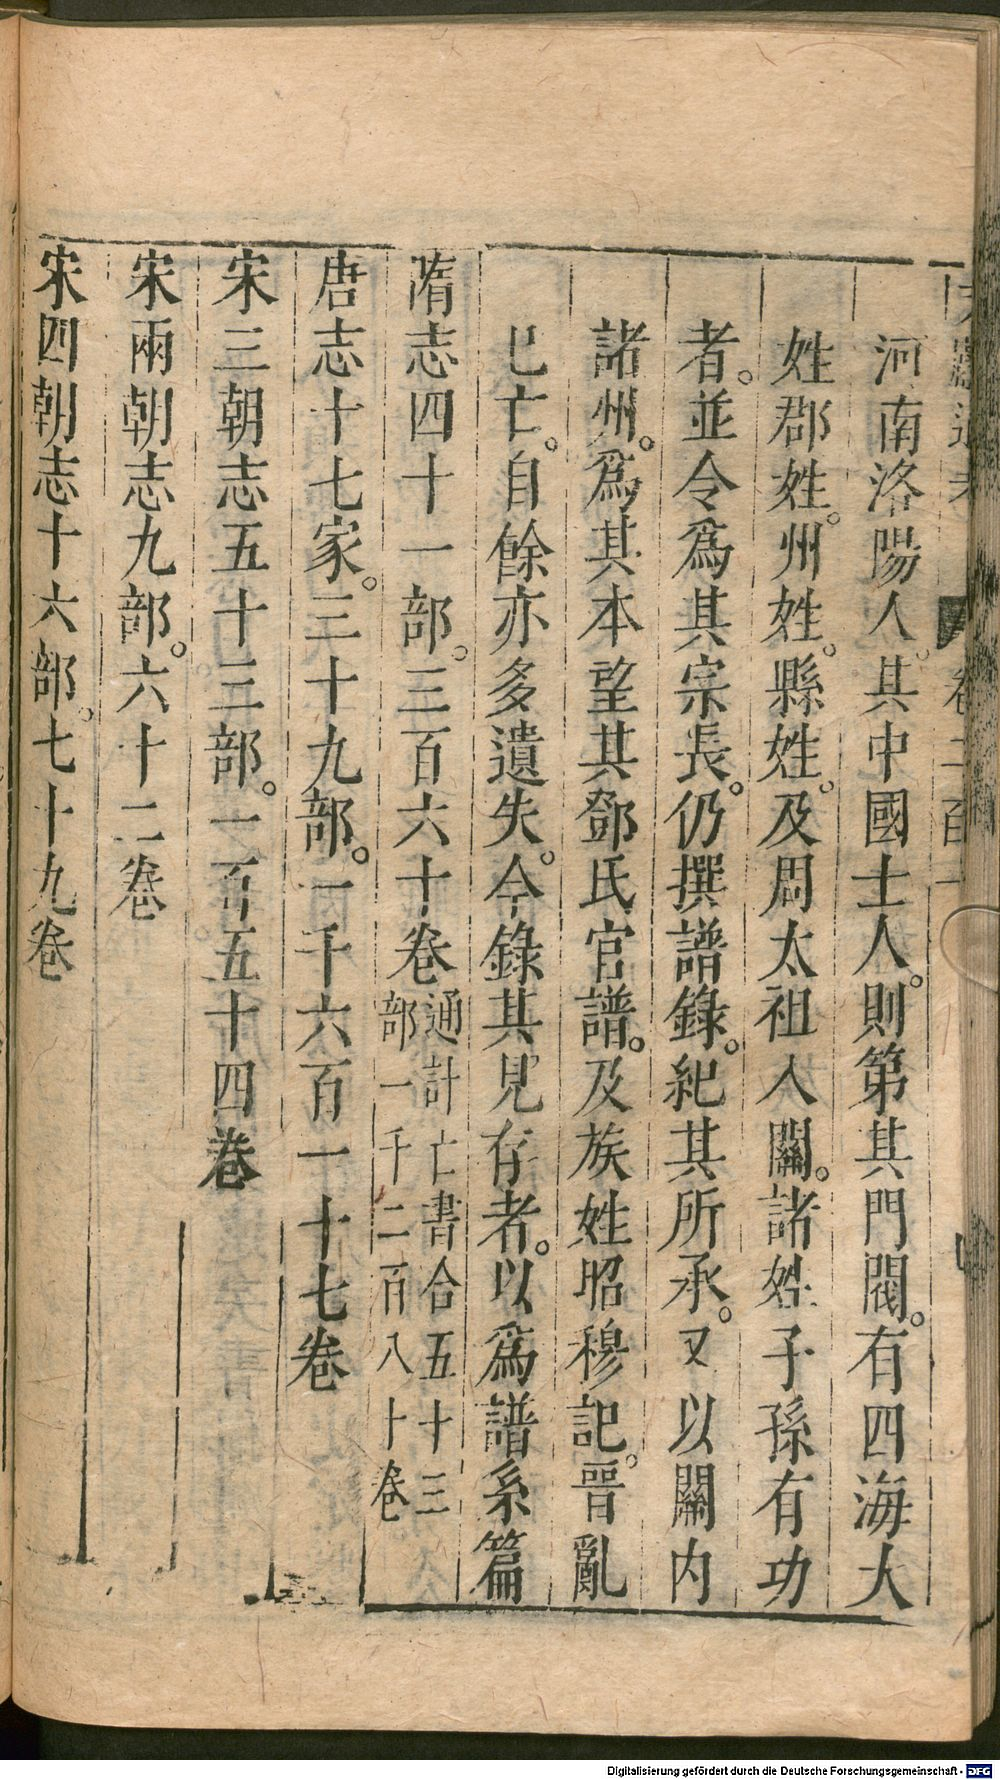 河南洛陽人。其中國士人。則第其門閥。有四海大
姓郡姓。州姓。縣姓。及周太祖入關。諸姓子孫有功
者。並令爲其宗長。仍撰譜錄。紀其所承。又以關内
諸州。爲其本望其鄧氏官譜。及族姓昭穆記。晉亂
已亡。自餘亦多遺失。今錄其見存者。以爲譜系篇
隋志四十一部。三百六十卷通計亡書合五十三
部一千二百八十卷
唐志十七家。三十九部。一千六百一十七卷
宋三朝志五十三部。一百五十四卷
宋兩朝志九部。六十二卷
宋四朝志十六部。七十九卷
Digitalisierung gefördert durch die Deutsche Forschungsgemeinschaft - DFG